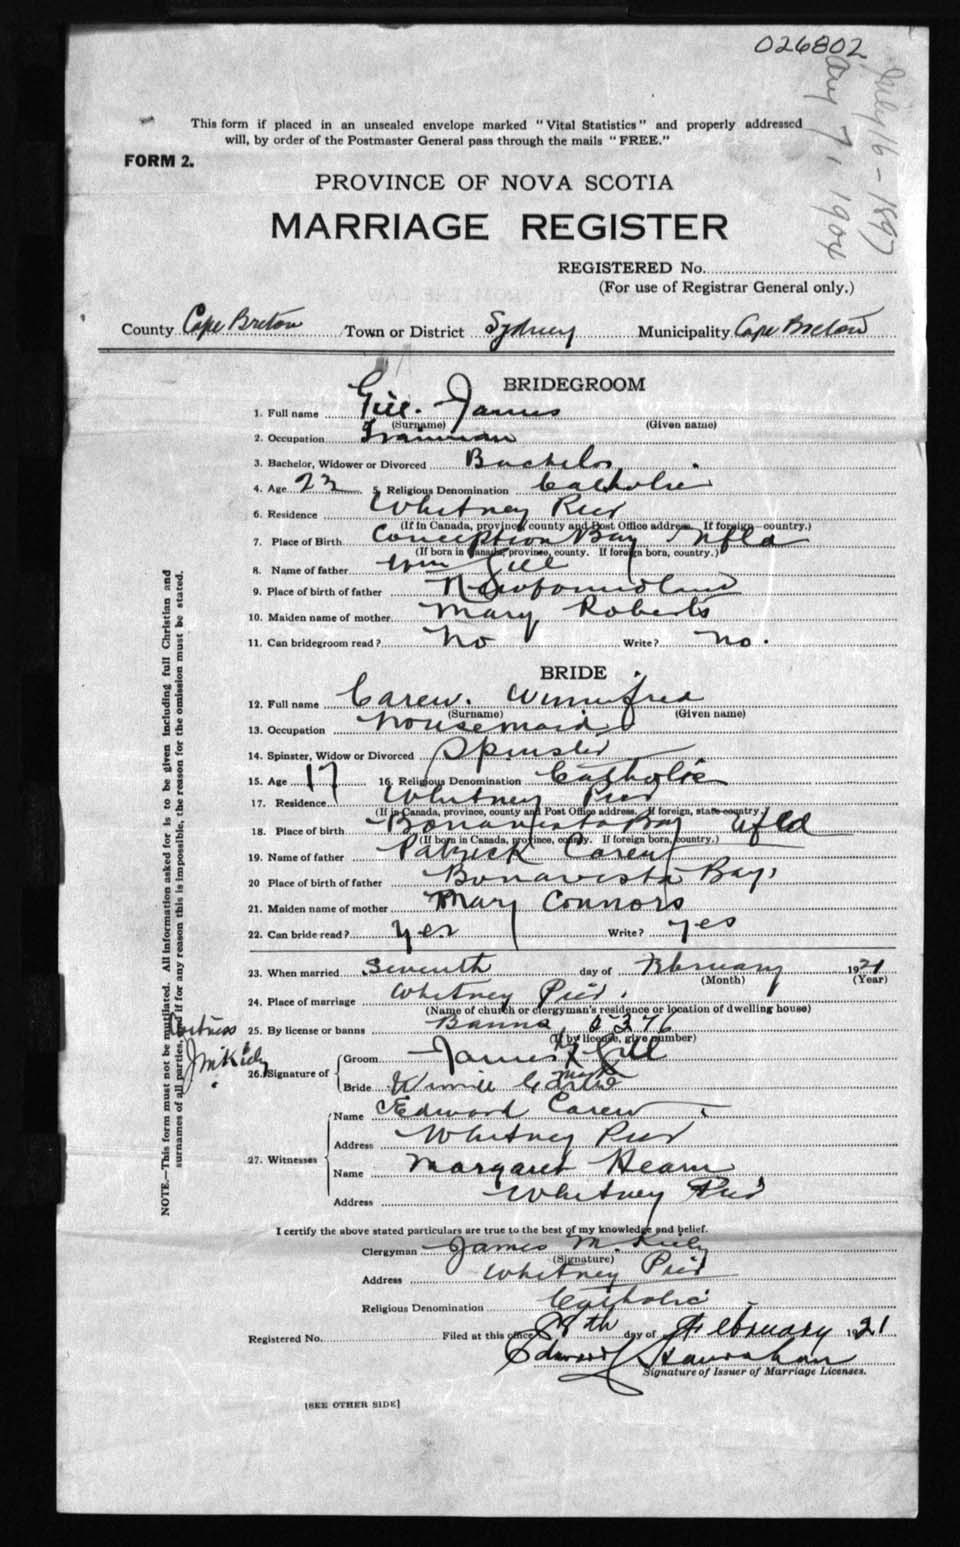 026802
July 16 - 1897
Aug 7, 1904
This form if placed in an unsealed envelope marked "Vital Statistics" and properly addressed
will, by order of the Postmaster General pass through the mails "FREE."
FORM 2.
PROVINCE OF NOVA SCOTIA
MARRIAGE REGISTER
REGISTERED No.
(For use of Registrar General only.)
County Cape Breton Town or District Sydney Municipality Cape Breton
BRIDEGROOM
1. Full name Gill. James
(Surname) (Given name)
2. Occupation Trainman
3. Bachelor, Widower or Divorced Bachelor
4. Age 22 5. Religious Denomination Catholic
6. Residence Whitney Pier
(If in Canada, province, county and Post Office address. If foreign—country.)
7. Place of Birth Conception Bay Nfld
(If born in Canada, province, county. If foreign born, country.)
8. Name of father Wm Gill
9. Place of birth of father Newfoundland
10. Maiden name of mother Mary Roberts
11. Can bridegroom read? No Write? No.
BRIDE
12. Full name Carew. Winnifred
(Surname) (Given name)
13. Occupation Housemaid
14. Spinster, Widow or Divorced Spinster
15. Age 17 16. Religious Denomination Catholic
17. Residence Whitney Pier
(If in Canada, province, county and Post Office address, if foreign, state country.)
18. Place of birth Bonavista Bay Nfld
(If born in Canada, province, county. If foreign born, country.)
19. Name of father Patrick Carew
20 Place of birth of father Bonavista Bay,
21. Maiden name of mother Mary Connors
22. Can bride read? Yes Write? Yes
23. When married Seventh day of February 1921
(Month) (Year)
24. Place of marriage Whitney Pier.
(Name of church or clergyman's residence or location of dwelling house)
25. By license or banns Banns,
(If by license, give number)
26. Signature of
Groom James Gill
Bride Winnie
27. Witnesses
Name Edward Carew
Address Whitney Pier
Name Margaret Hearn
Address Whitney Pier
I certify the above stated particulars are true to the best of my knowledge and belief.
Clergyman James M. Kiely
(Signature)
Address Whitney Pier
Religious Denomination Catholic
Registered No. Filed at this office 28th day of February 1921
Edward Hanrahan
Signature of Issuer of Marriage Licenses.
[SEE OTHER SIDE]
NOTE.—This form must not be mutilated. All information asked for is to be given including full Christian and
surnames of all parties, and if for any reason this is impossible, the reason for the omission must be stated.
Witness
J M Kiely